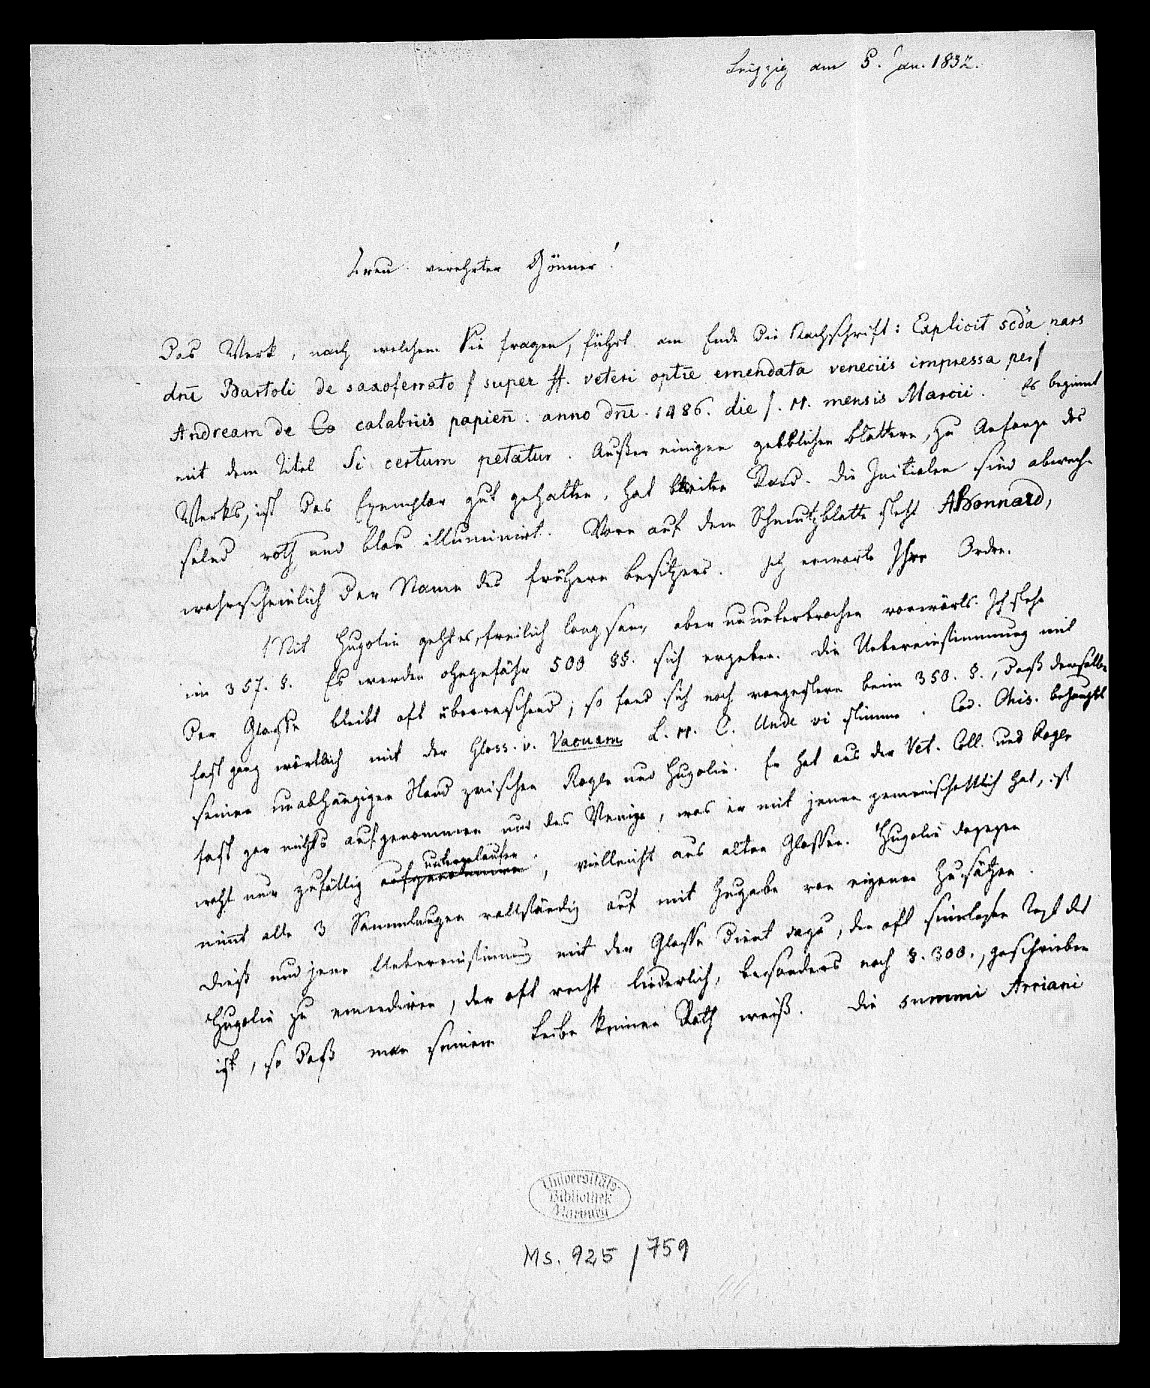 Leipzig am 5. Jan. 1832.
Treu verehrter Gönner!
Das Werk, nach welchem Sie fragen, führt am Ende die Nachschrift: Explicit scda pars
dni Bartoli de saxoferrato / super ff. veteri optie emendata veneciis impressa per /
Andream de Co calabriis papien. anno dni. 1486. die /. M. mensis Marcii. Es beginnt
mit dem Titel Si certum petatur. Außer einigen gelblichen Blättern, zu Anfange des
Werks, ist das Exemplar gut gehalten, hat breiten Rand. Die Initialen sind abwech-
selnd roth und blau illuminirt. Vorn auf dem Schmutzblatte steht ABonnard,
wahrscheinlich der Name des frühern Besitzers. Ich erwarte Ihre Ordre.
Mit Hugolin geht es, freilich langsam, aber ununterbrochen vorwärts. Ich stehe
im 357. §. Es werden ohngefähr 500 §§. sich ergeben. Die Uebereinstimmung mit
der Glosse bleibt oft überraschend; so fand sich noch vorgestern beim 350. §., daß derselbe
fast ganz wörtlich mit der Gloss. v. Vacuam L. 11. C. Unde vi stimme. Cod. Chis. behauptet
seinen unabhängigen Stand zwischen Roger und Hugolin. Er hat aus der Vet. Coll. und Roger
fast gar nichts aufgenommen und das Wenige, was er mit jenen gemeinschaftlich hat, ist
wohl nur zufällig aufgenommen untergelaufen, vielleicht aus alten Glossen. Hugolin dagegen
nimt alle 3 Sammlungen vollständig auf mit Zugabe von eigenen Zusätzen.
Dieß und jene Uebereinstimung mit der Glosse dient dazu, den oft sinnlosen Text des
Hugolin zu emendiren, der oft recht liederlich, besonders nach §. 300., geschrieben
ist, so daß man seinem Leibe keinen Rath weiß. Die summi Arriani
Universitäts-
Bibliothek
Marburg
Ms. 925/759